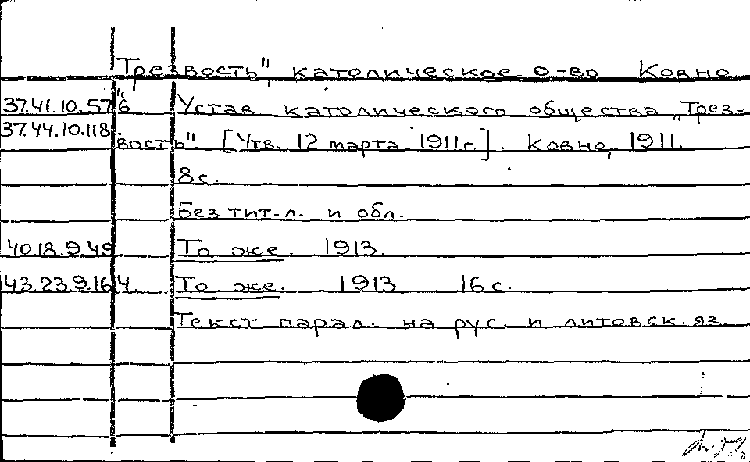 Трезвость", католическое о-во Ковно
37.41.10.576 Устав католического общества „Трез-
37.44.10.118 вость" [Утв. 12 марта 1911г.]. Ковно, 1911.
8с.
Без тит.л. и обл.
40.18.9.49 То же. 1913.
43.23.9.164. То же. 1913 16с.
Текст парал. на рус. и литовск. яз.